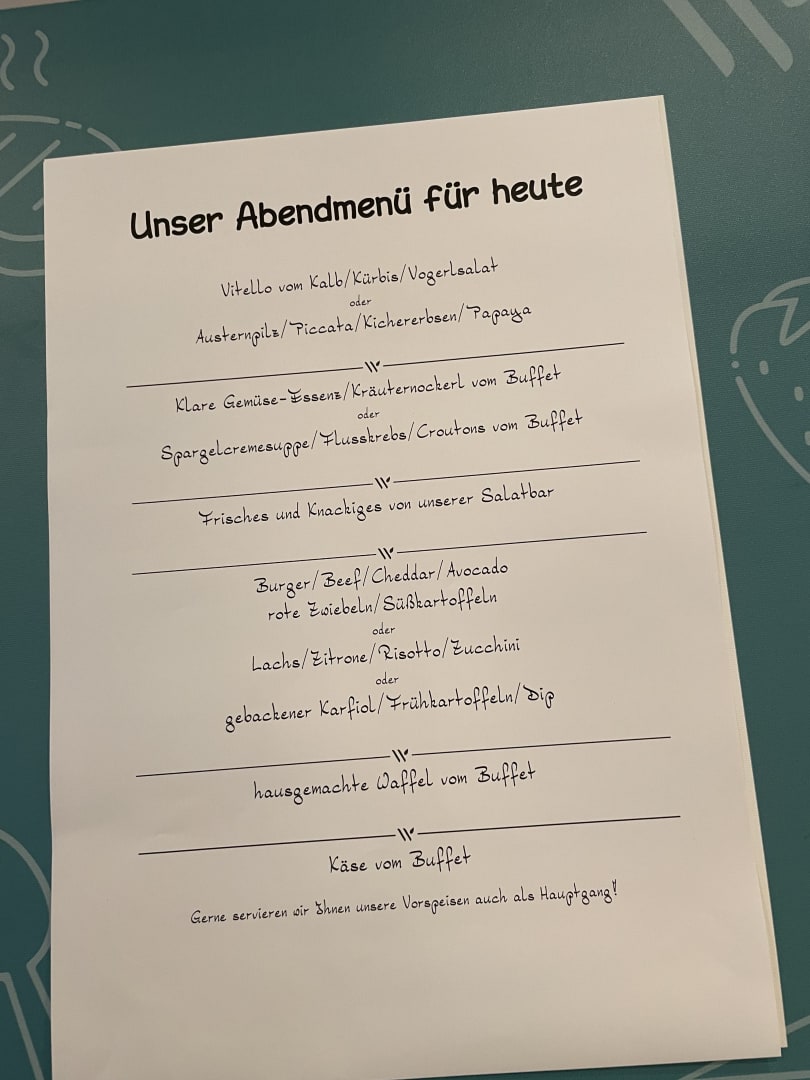 Unser Abendmenü für heute
Vitello vom Kalb/Kürbis/Vogerlsalat
oder
Austernpilz/Piccata/Kichererbsen/Papaya
Klare Gemüse-Essenz/Kräuternockerl vom Buffet
oder
Spargelcremesuppe/Flusskrebs/Croutons vom Buffet
Frisches und Knackiges von unserer Salatbar
Burger/Beef/Cheddar/Avocado
rote Zwiebeln/Süßkartoffeln
oder
Lachs/Zitrone/Risotto/Zucchini
oder
gebackener Karfiol/Frühkartoffeln/Dip
hausgemachte Waffel vom Buffet
Käse vom Buffet
Gerne servieren wir Ihnen unsere Vorspeisen auch als Hauptgang!